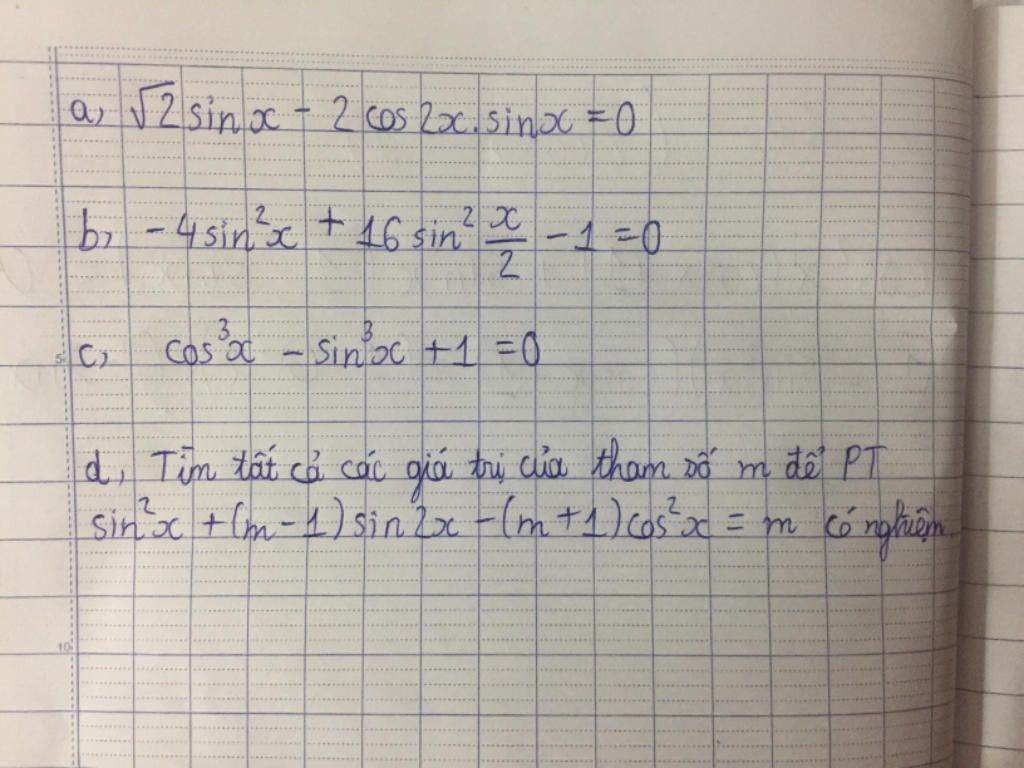 a, √2 sinx - 2 cos2x.sinx = 0
b, -4sin²x + 16 sin² x/2 - 1 = 0
5
c, cos³x - sin³x + 1 = 0
d, Tìm tất cả các giá trị của tham số m để PT
sin²x + (m-1) sin2x - (m+1) cos²x = m có nghiệm.
10